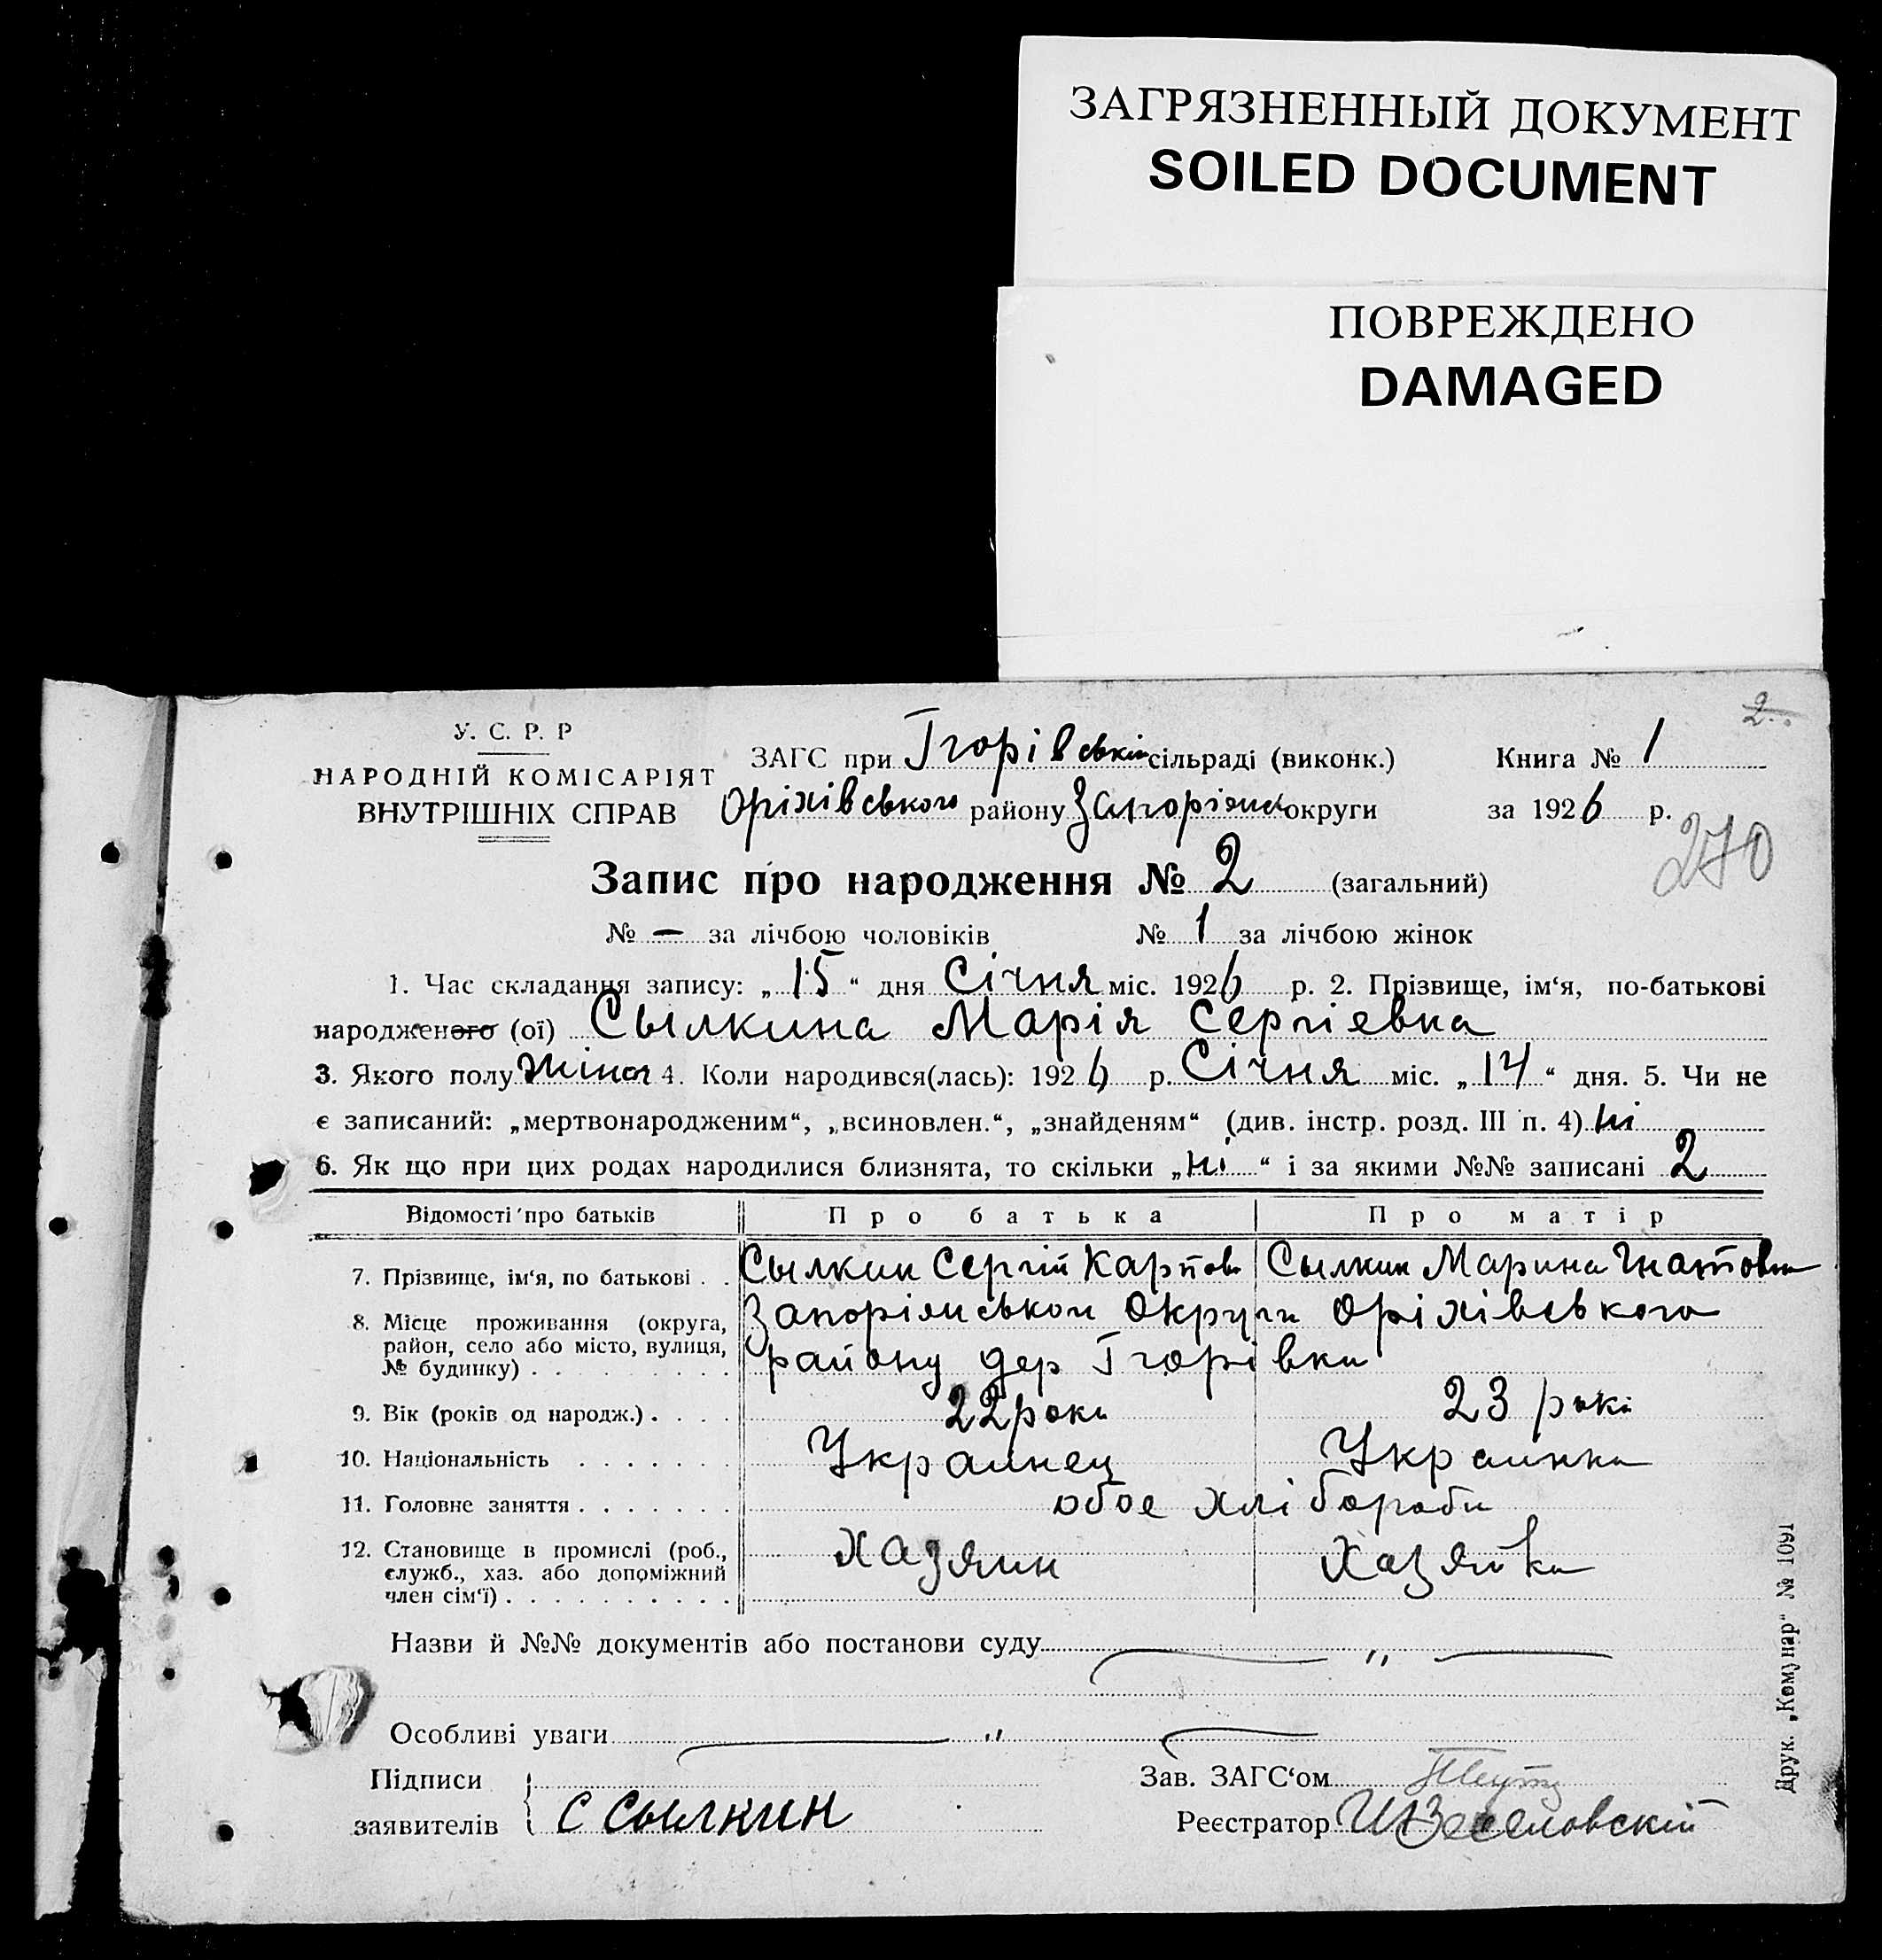 ЗАГРЯЗНЕННЫЙ ДОКУМЕНТ
SOILED DOCUMENT
ПОВРЕЖДЕНО
DAMAGED
2
У. С. Р. Р
НАРОДНІЙ КОМІСАРІЯТ
ВНУТРІШНІХ СПРАВ
ЗАГС при Ігорівській сільраді (виконк.) Книга № 1
Оріхівського району Запоріжськ округи за 1926 р.
270
Запис про народження № 2 (загальний)
№ — за лічбою чоловіків № 1 за лічбою жінок
1. Час складання запису: „15“ дня Січня міс. 1926 р. 2. Прізвище, ім‘я, по-батькові
народженого (ої) Сылкина Марія Сергіевна
3. Якого полу жіноч 4. Коли народився(лась): 1926 р. Січня міс. „14“ дня. 5. Чи не
є записаний: „мертвонародженим“, „всиновлен.“, „знайденям“ (див. інстр. розд. III п. 4) ні
6. Як що при цих родах народилися близнята, то скільки „ні“ і за якими №№ записані 2
Відомості про батьків Про батька Про матір
7. Прізвище, ім‘я, по батькові . . Сылкин Сергій Карпов Сылкин Марина Гнатовна
8. Місце проживання (округа, район, село або місто, вулиця, № будинку) . . . . . . . . . Запоріжськои Округи Оріхівського
району дер Ігорівки
9. Вік (років од народж.) . . . . 22 роки 23 роки
10. Національність . . . . . . . Украинец Украинка
11. Головне заняття . . . . . . . обое хліборобы
12. Становище в промислі (роб., служб., хаз. або допоміжний член сім‘ї) . . . . . . . . . . Хазяин Хазяйка
Назви й №№ документів або постанови суду — „ —
Особливі уваги — „ —
Підписи
заявителів С Сылкин
Зав. ЗАГС‘ом
Реєстратор И Веселовскій
Друк. „Комунар“ № 1091